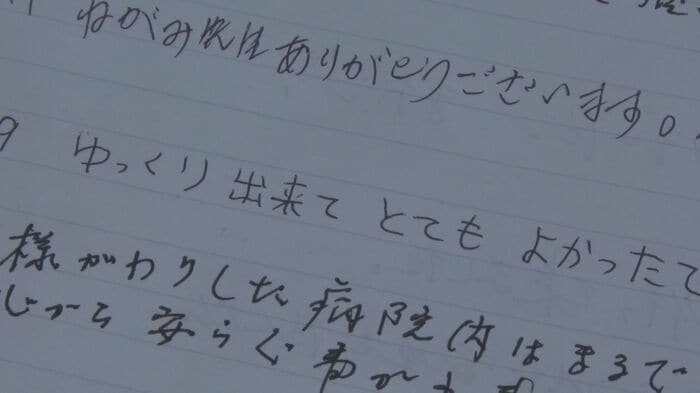 ねがみ先生ありがとうございます。
9 ゆっくり出来て とても よかったで
様がわりした 病院内は まるで
安らぐ